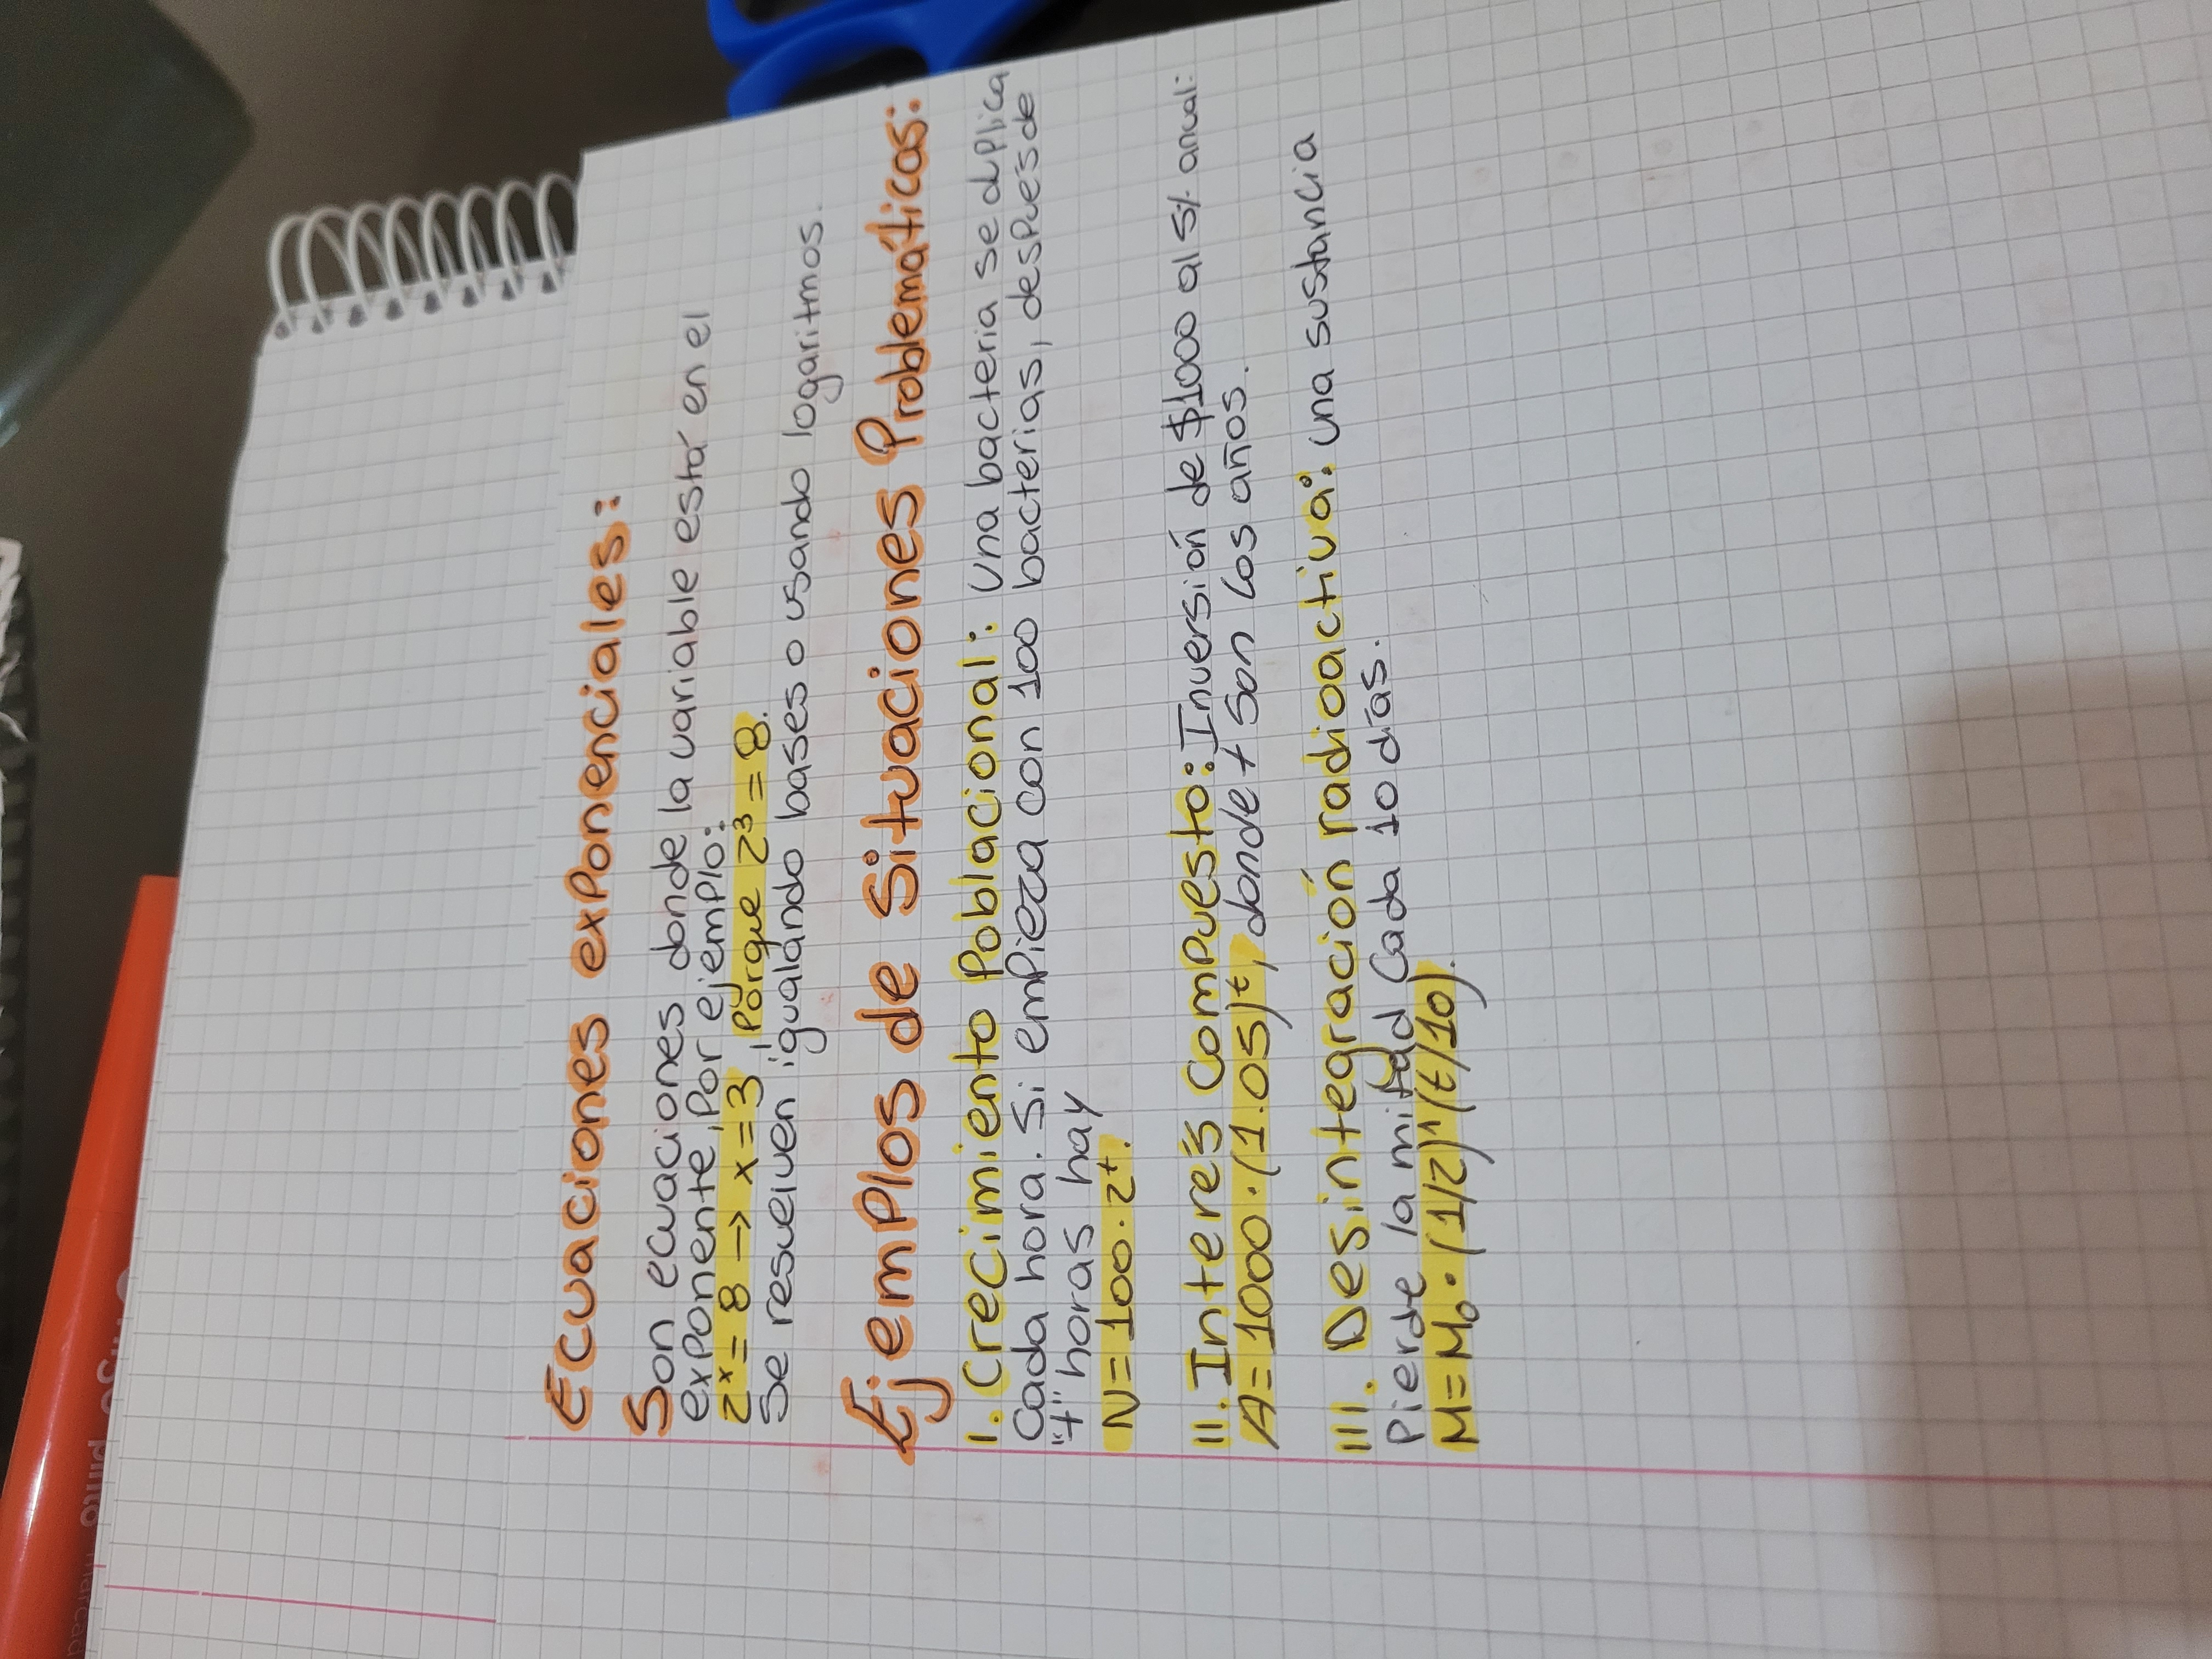 Ecuaciones exponenciales:
Son ecuaciones donde la variable está en el
exponente, Por ejemplo:
2ˣ = 8 → x = 3, Porque 2³ = 8.
Se resuelven igualando bases o usando logaritmos.
Ejemplos de Situaciones Problemáticas:
I. Crecimiento Poblacional: Una bacteria se duplica
Cada hora. Si empieza con 100 bacterias, despues de
"t" horas hay
N = 100 · 2ᵗ.
II. Interés Compuesto: Inversión de $1000 al 5% anual:
A = 1000 · (1.05)ᵗ, donde t son los años.
III. Desintegración radioactiva: una sustancia
Pierde la mitad Cada 10 días.
M = M₀ · (1/2)^(t/10).
pinto